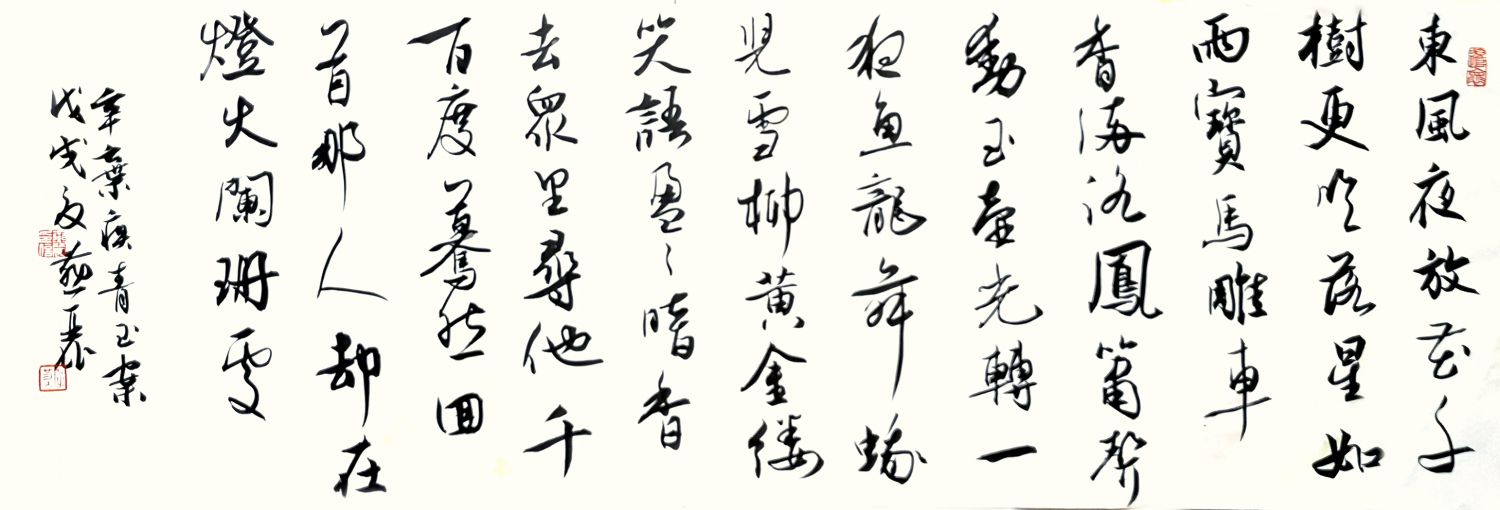 東風夜放花千
樹更吹落星如
雨寶馬雕車
香滿路鳳簫聲
動玉壺光轉一
夜魚龍舞蛾
兒雪柳黃金縷
笑語盈〻暗香
去眾里尋他千
百度驀然回
首那人却在
燈火闌珊處
辛棄疾青玉案
戊戌夏